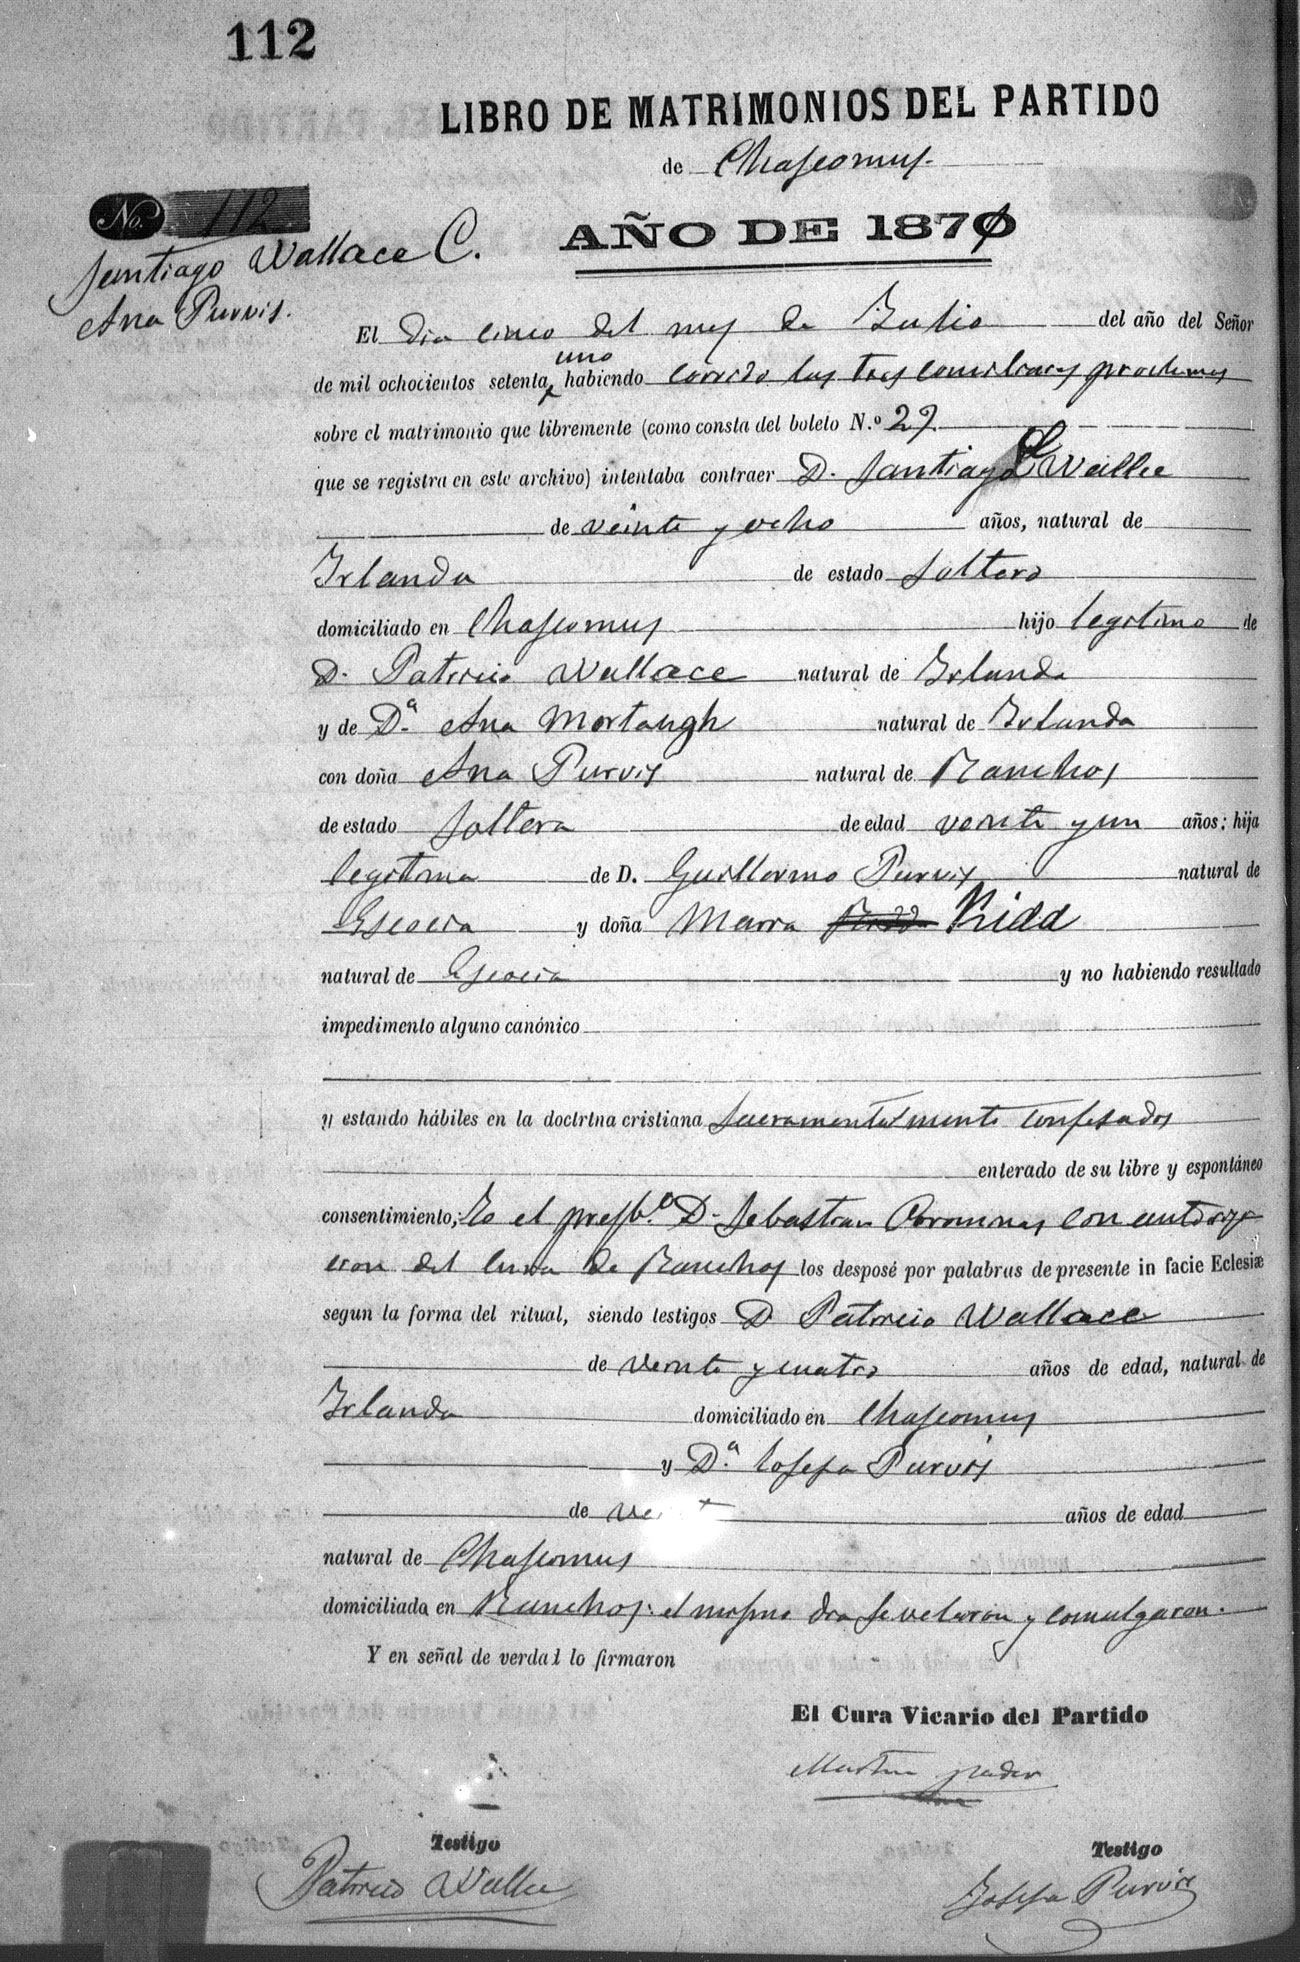 112
LIBRO DE MATRIMONIOS DEL PARTIDO
de Chascomus.
No. 112
AÑO DE 1870
Santiago Wallace C.
Ana Purvis.
El dia cinco del mes de Julio del año del Señor
uno
de mil ochocientos setenta, habiendo corrido las tres conciliares proclamas
sobre el matrimonio que libremente (como consta del boleto N.º 27.
que se registra en este archivo) intentaba contraer D. Santiago C Wallce
de veinte y ocho años, natural de
Irlanda de estado soltero
domiciliado en Chascomus hijo legitimo de
D. Patricio Wallace natural de Irlanda
y de Dª Ana Mortaugh natural de Irlanda
con doña Ana Purvis natural de Ranchos
de estado soltera de edad veinte y un años; hija
legitima de D. Guillermo Purvis natural de
Escocia y doña Maria Kidd
natural de Escocia y no habiendo resultado
impedimento alguno canónico
y estando hábiles en la doctrtna cristiana sacramentalmente confesados
enterado de su libre y espontáneo
consentimiento; Yo el presbº D. Sebastian Corominas con autoriza
cion del cura de Ranchos los desposé por palabras de presente in facie Eclesiæ
segun la forma del ritual, siendo testigos D Patricio Wallace
de veinte y cuatro años de edad, natural de
Irlanda domiciliado en Chascomus
y Dª Josefa Purvis
de años de edad
natural de Chascomus
domiciliada en Ranchos: el mismo dia se velaron y comulgaron.
Y en señal de verdad lo firmaron
El Cura Vicario del Partido
Martin
Testigo Testigo
Patricio Wallce Josefa Purvis